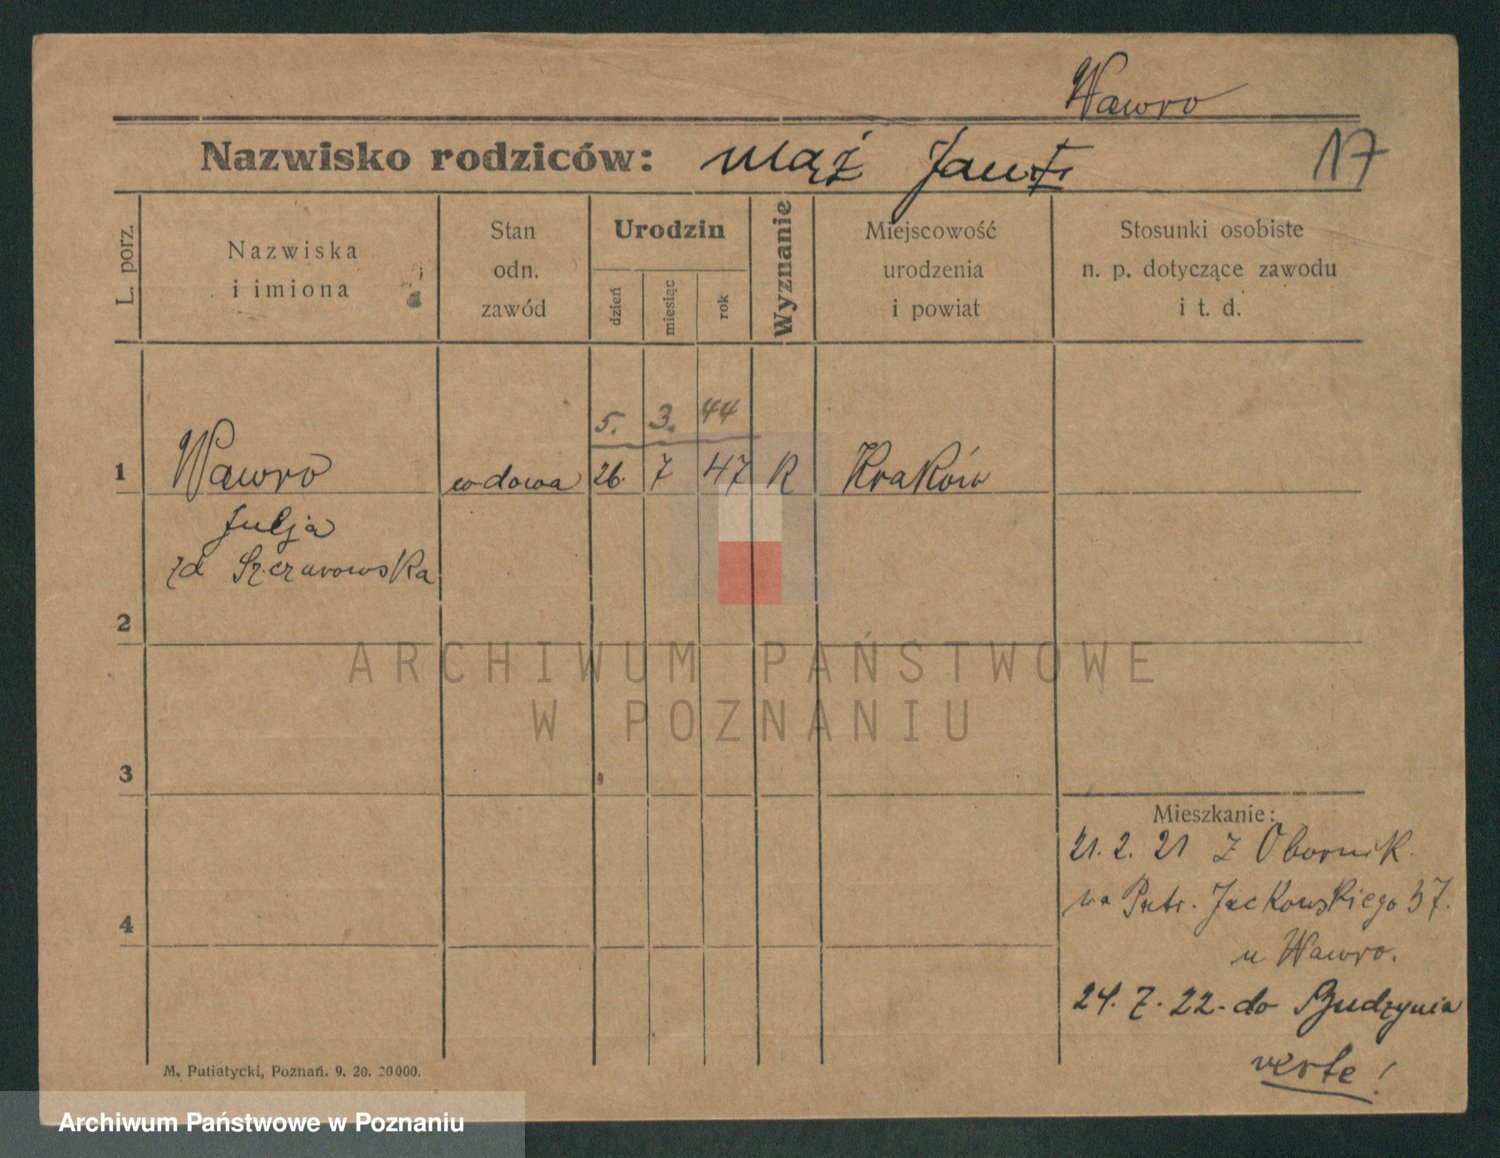 Wawro
Nazwisko rodziców: mąż
17
L. porz.
Nazwiska
i imiona
Stan
odn.
zawód
Urodzin
dzień
miesiąc
rok
Wyznanie
Miejscowość
urodzenia
i powiat
Stosunki osobiste
n. p. dotyczące zawodu
i t. d.
5. 3. 44
1 Wawro wdowa 26. 7 47 K Kraków
Julja
zd
2
3
4
ARCHIWUM PAŃSTWOWE
W POZNANIU
Mieszkanie:
21. 2. 21 z Obornik
na Jackowskiego 37.
u Wawro.
24. 7. 22 - do Budzynia
verte!
M. Putiatycki, Poznań. 9. 20. 20000.
Archiwum Państwowe w Poznaniu